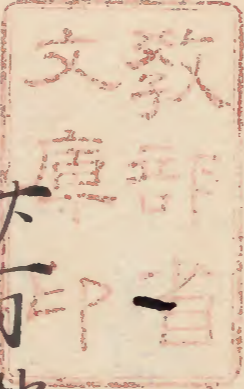 教部省
文庫印
一